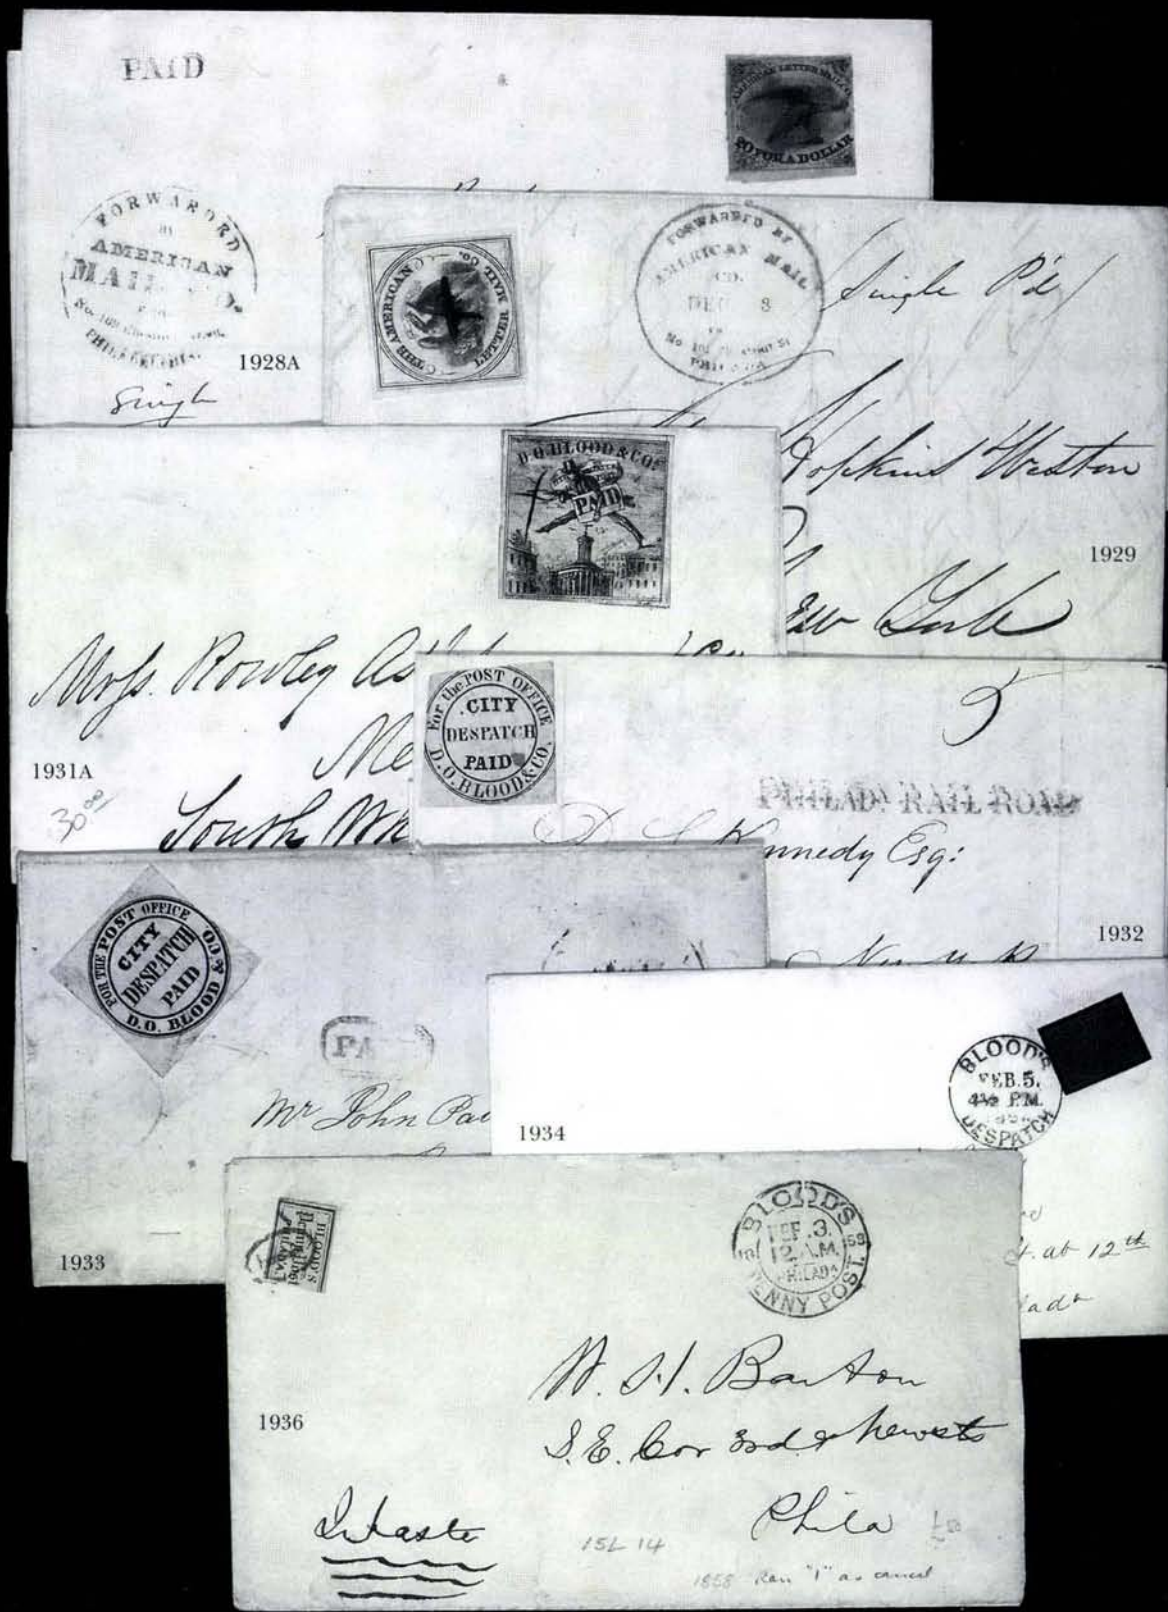 PAID
AMERICAN LETTER MAIL CO.
20 FOR A DOLLAR
FORWARD
BY
AMERICAN
MAIL CO.
PHILADELPHIA.
1928A
Single
THE AMERICAN LETTER MAIL CO.
FORWARDED BY
AMERICAN MAIL
CO.
DEC 3
Single P'd
Hopkins Weston
1929
D.O. BLOOD & CO'S
PAID
Mess. Rowley
1931A
30 00
South
For the POST OFFICE
CITY
DESPATCH
PAID
D.O. BLOOD & CO.
5
PHILADA RAIL ROAD
Kennedy Esq:
1932
FOR THE POST OFFICE
CITY
DESPATCH
PAID
D.O. BLOOD & CO.
PA
Mr John
1933
BLOOD'S
FEB. 5.
4½ P.M.
DESPATCH
1934
at 12th
BLOOD'S
Penny Post
PHILADA.
BLOOD'S
FEB. 3.
12. A.M.
PHILADA
PENNY POST.
W. H. Barton
S. E. Cor 3rd &
1936
In haste
Phila
15L 14
1858 Red "1" as cancel